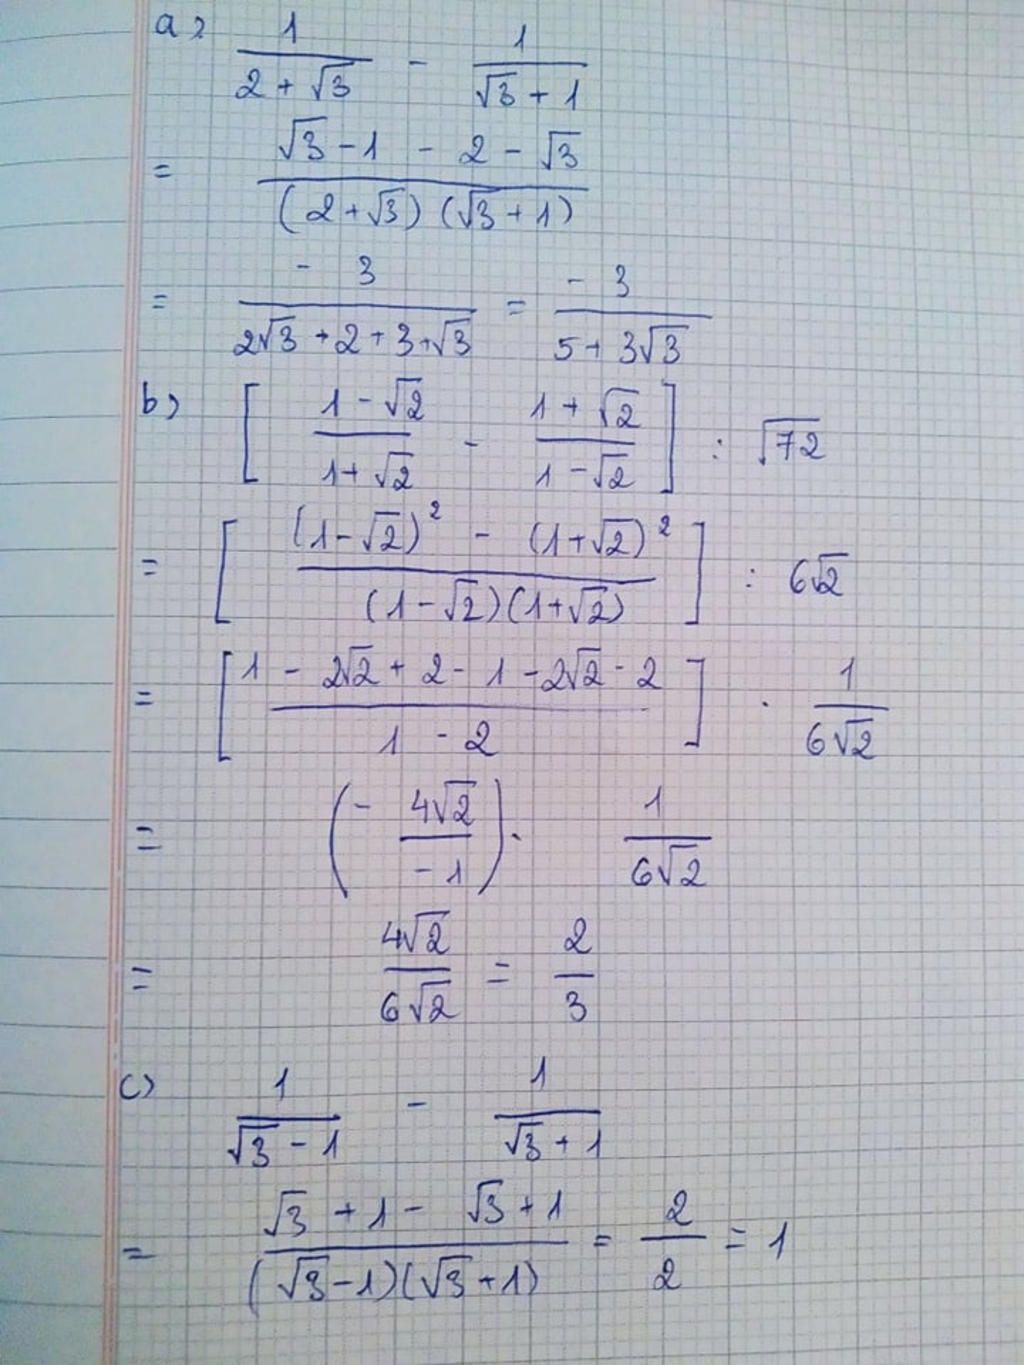 a) 1/(2 + √3) - 1/(√3 + 1)
= (√3 - 1 - 2 - √3)/((2 + √3)(√3 + 1))
= -3/(2√3 + 2 + 3 + √3) = -3/(5 + 3√3)
b) [(1 - √2)/(1 + √2) - (1 + √2)/(1 - √2)] : √72
= [((1 - √2)² - (1 + √2)²)/((1 - √2)(1 + √2))] : 6√2
= [(1 - 2√2 + 2 - 1 - 2√2 - 2)/(1 - 2)] . 1/(6√2)
= (- 4√2/-1) . 1/(6√2)
= 4√2/6√2 = 2/3
c) 1/(√3 - 1) - 1/(√3 + 1)
= (√3 + 1 - √3 + 1)/((√3 - 1)(√3 + 1)) = 2/2 = 1